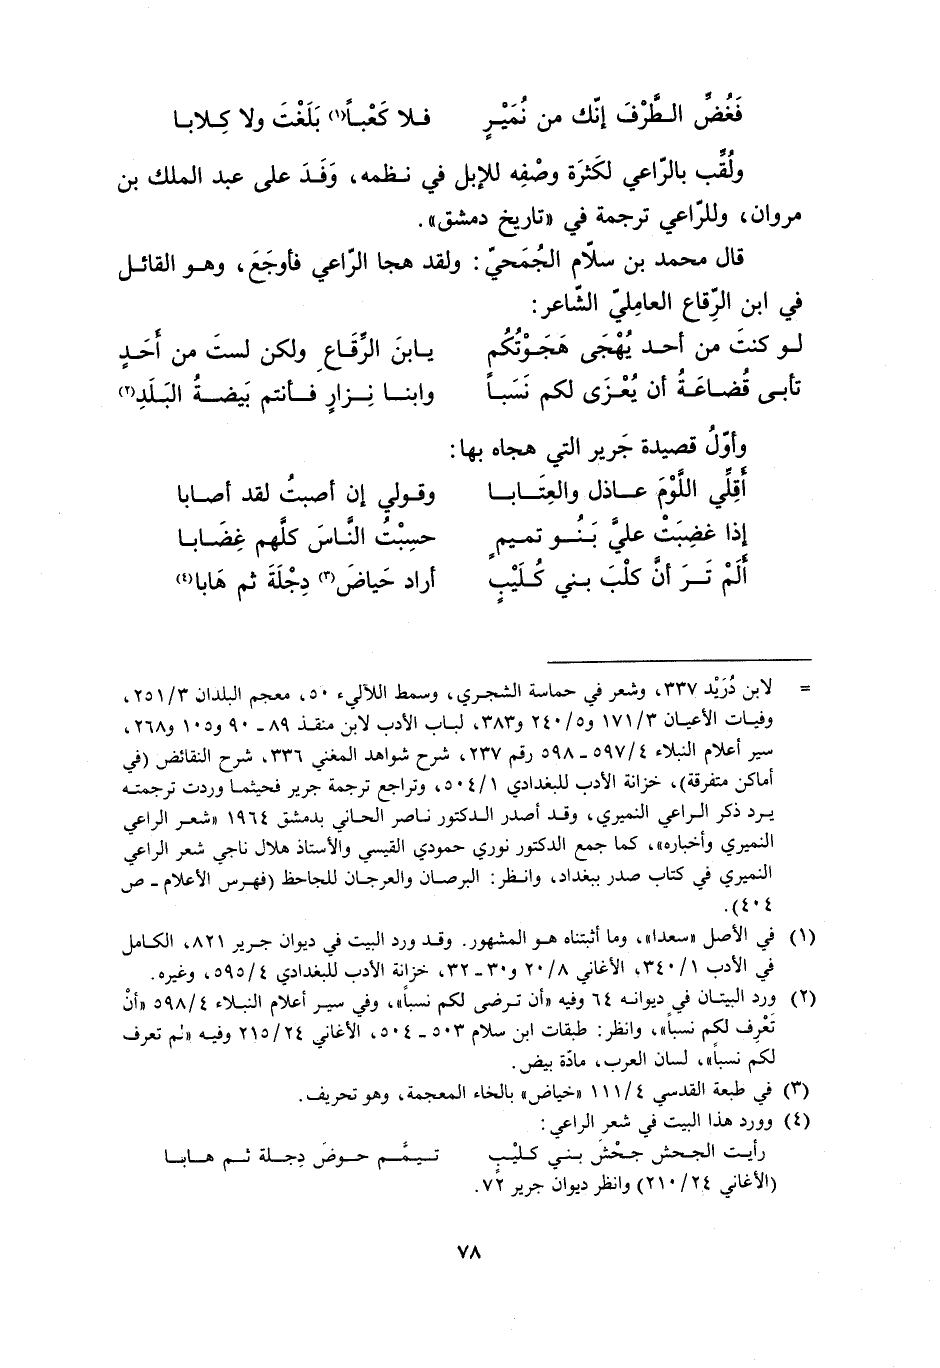 فَغُضِّ الطَّرْفَ إنّك من نُمَيْرٍ فلا كَعْباً(١) بَلَغْتَ ولا كِلابا
ولُقِّب بالرّاعي لكَثرَة وصْفِه للإبل في نظمه، وَفَدَ على عبد الملك بن
مروان، وللرّاعي ترجمة في «تاريخ دمشق».
قال محمد بن سلّام الجُمَحيّ: ولقد هجا الرّاعي فأوجَعَ، وهو القائل
في ابن الرِّقاع العامِليّ الشّاعر:
لو كنتَ من أحد يُهْجَى هَجَوْتُكُم يابنَ الرِّقَاعِ ولكن لستَ من أَحَدِ
تأبى قُضاعَةُ أن يُعْزَى لكم نَسَباً وابنا نِزارٍ فأنتم بَيضةُ البَلَدِ(٢)
وأوّلُ قصيدة جَرير التي هجاه بها:
أَقِلِّي اللَّوْمَ عاذل والعِتَابا وقولي إن أصبتُ لقد أصابا
إذا غضِبَتْ عليَّ بَنُو تميمٍ حسِبْتُ النَّاسَ كلَّهم غِضَابا
أَلَمْ تَرَ أنَّ كلْبَ بني كُلَيْبٍ أراد حَياضَ(٣) دِجْلَةَ ثم هَابا(٤)
= لابن دُرَيْد ٣٣٧، وشعر في حماسة الشجري، وسمط اللآليء ٥٠، معجم البلدان ٢٥١/٣،
وفيات الأعيان ١٧١/٣ و٢٤٠/٥ و٣٨٣، لباب الأدب لابن منقذ ٨٩ ـ ٩٠ و١٠٥ و٢٦٨،
سير أعلام النبلاء ٥٩٧/٤ ـ ٥٩٨ رقم ٢٣٧، شرح شواهد المغني ٣٣٦، شرح النقائض (في
أماكن متفرقة)، خزانة الأدب للبغدادي ٥٠٤/١، وتراجع ترجمة جرير فحيثما وردت ترجمته
يرد ذكر الراعي النميري، وقد أصدر الدكتور ناصر الحاني بدمشق ١٩٦٤ «شعر الراعي
النميري وأخباره»، كما جمع الدكتور نوري حمودي القيسي والأستاذ هلال ناجي شعر الراعي
النميري في كتاب صدر ببغداد، وانظر: البرصان والعرجان للجاحظ (فهرس الأعلام ـ ص
٤٠٤).
(١) في الأصل «سعدا»، وما أثبتناه هو المشهور. وقد ورد البيت في ديوان جرير ٨٢١، الكامل
في الأدب ٣٤٠/١، الأغاني ٢٠/٨ و٣٠ ـ ٣٢، خزانة الأدب للبغدادي ٥٩٥/٤، وغيره.
(٢) ورد البيتان في ديوانه ٦٤ وفيه «أن ترضى لكم نسباً»، وفي سير أعلام النبلاء ٥٩٨/٤ «أنْ
تَعْرِف لكم نسباً»، وانظر: طبقات ابن سلام ٥٠٣ ـ ٥٠٤، الأغاني ٢١٥/٢٤ وفيه «لم تعرف
لكم نسباً»، لسان العرب، مادّة بيض.
(٣) في طبعة القدسي ١١١/٤ «خياض» بالخاء المعجمة، وهو تحريف.
(٤) وورد هذا البيت في شعر الراعي:
رأيت الجحش جحْشَ بني كليْبٍ تيمَّم حوضَ دِجلة ثم هابا
(الأغاني ٢١٠/٢٤) وانظر ديوان جرير ٧٢.
٧٨